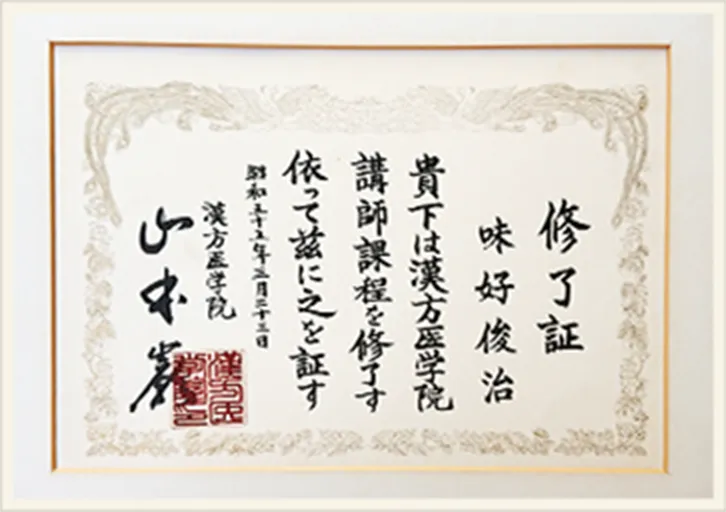 修了証
味好俊治
貴下は漢方医学院
講師課程を修了す
依って茲に之を証す
昭和五十五年三月二十三日
漢方医学院
山本巌